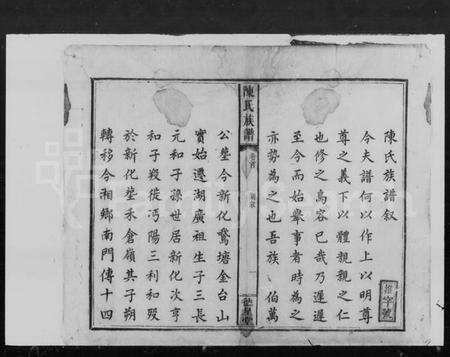 陳氏族譜叙
今夫譜何以作上以明尊
尊之義下以體親親之仁
也修之烏容已哉乃運遲
至今而始舉事者時為之
亦勢為之也吾族 伯萬
陳氏族譜
卷首
公塋今新化鷟塘金台山
實始遷湖廣祖生子三長
元和子孫世居新化次亨
和子毅徙沔陽三利和殁
於新化塋禾倉嶺其子朔
轉移今湘鄉南門傳十四
字號